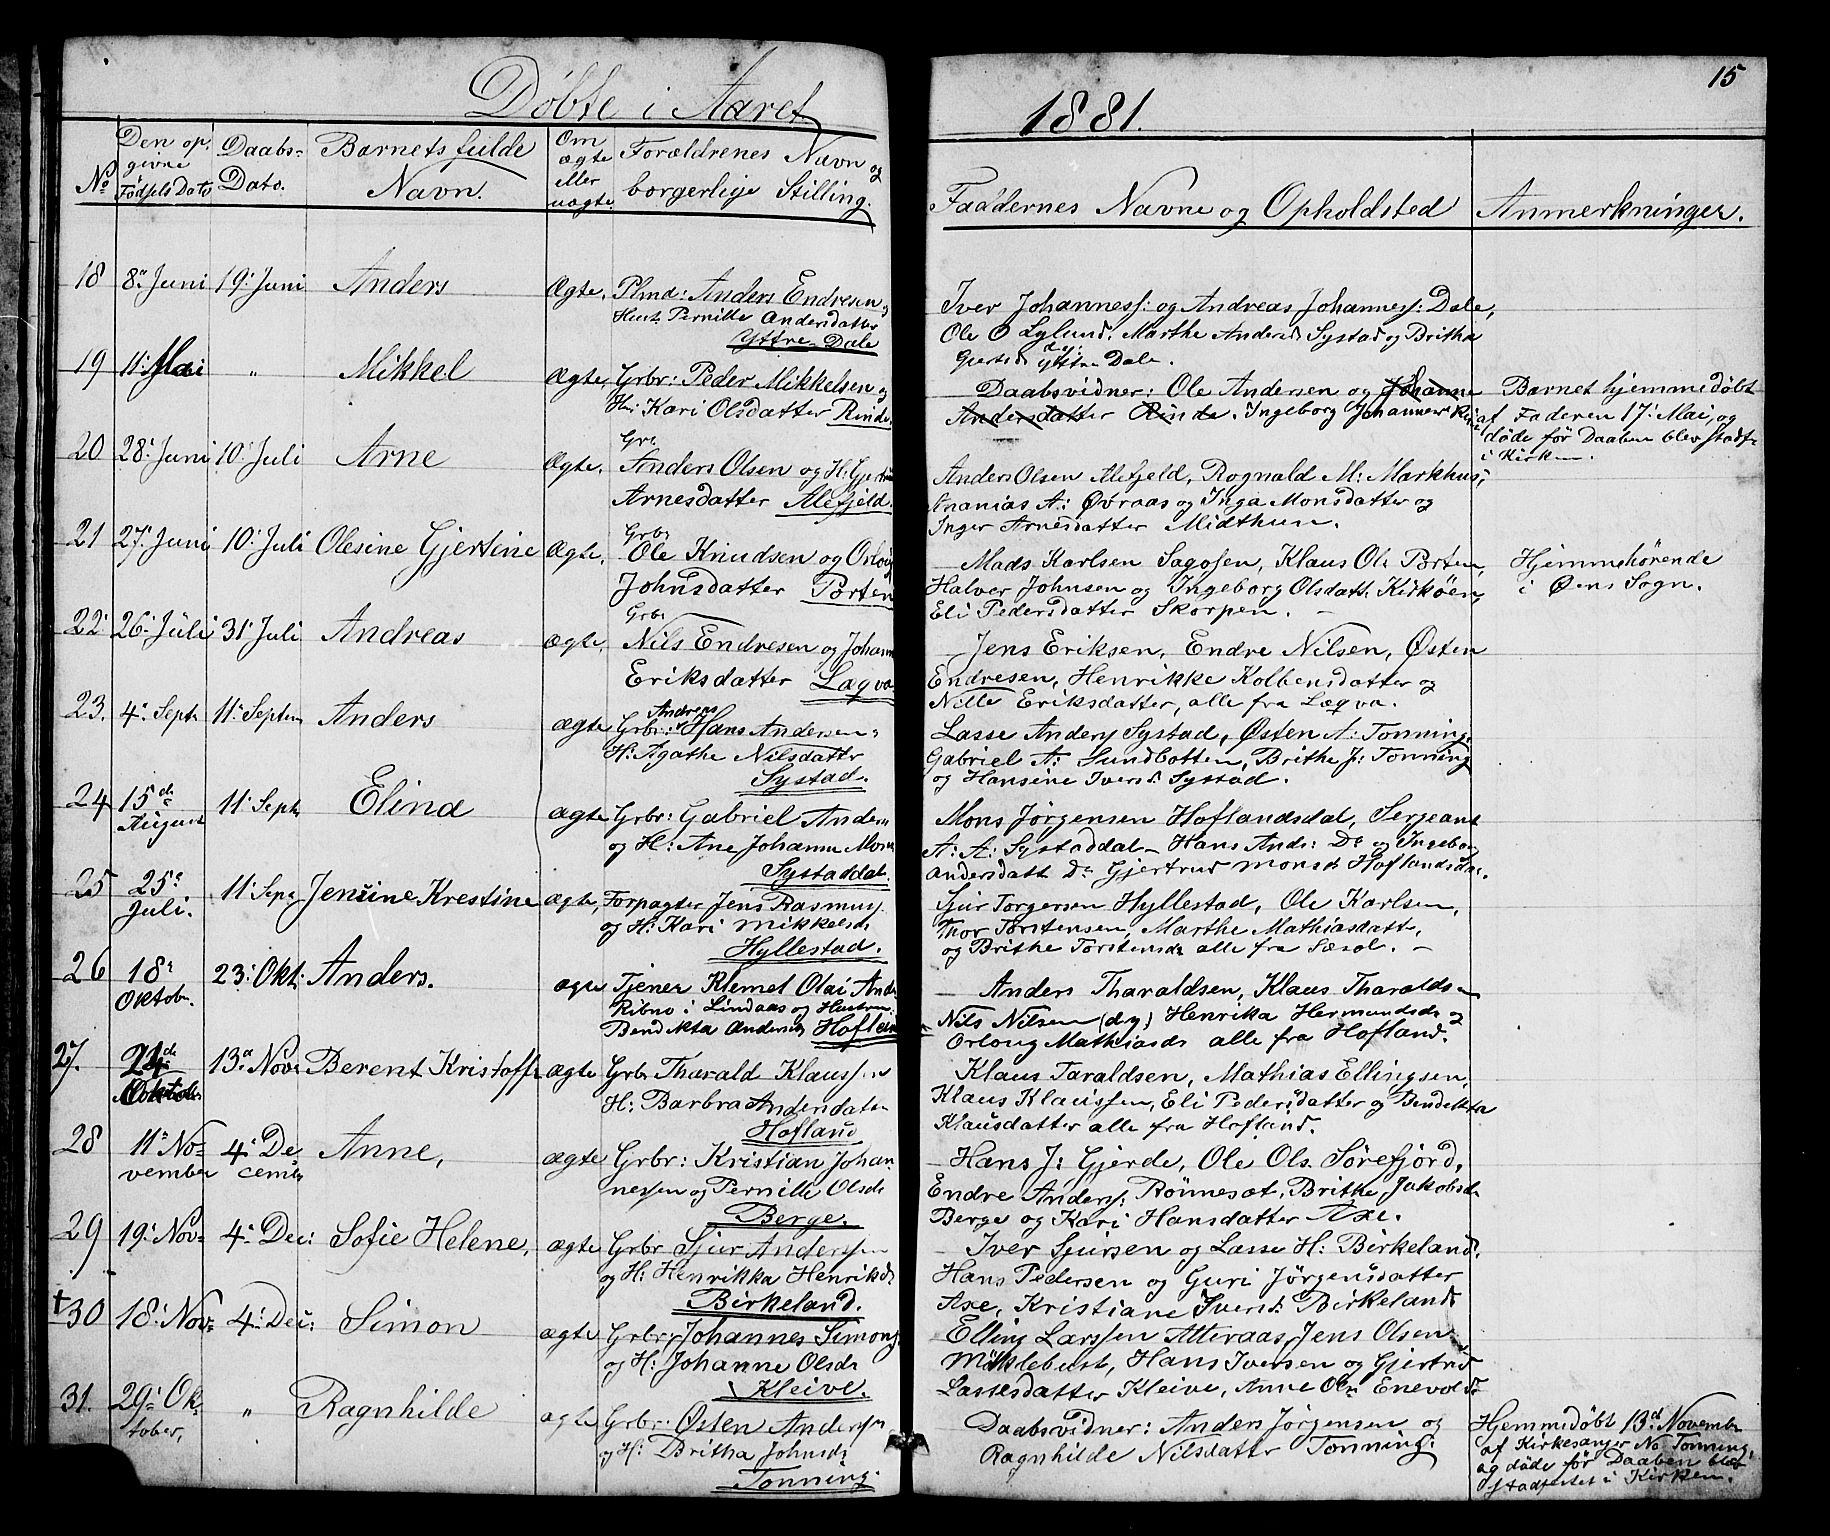 Döbte i Aaret 1881.
15
No
Den opgivne Födsels Dato
Daabs-Dato.
Barnets fulde Navn.
Om ægte eller uægte.
Forældrenes Navn og borgerlige Stilling.
Faddernes Navne og Opholdsted
Anmerkninger.
18 8de Juni 19. Juni Anders Ægte, Plmd: Anders Endresen og
Hust. Pernille Andersdatter
Yttre Dale
Iver Johanness: og Andreas Johanness: Dale,
Ole O Lylund, Marthe Andersd Systad og Britha
Gjertsd Yttre Dale.
19 11. Mai " Mikkel ægte, Grbr: Peder Mikkelsen og
Hu: Kari Olsdatter Rinde,
Daabsvidner: Ole Andersen og Johanne
Andersdatter Rinde. Ingeborg Johannesd
Barnet hjemmedöbt
af Faderen 17. Mai, og
döde för Daaben blev stadf.
i Kirken.
20 28. Juni 10. Juli Arne Ægte, Grbr
Anders Olsen og H: Gjertrud
Arnesdatter Alefjeld.
Anders Olsen Alefjeld, Rognald M: Markhus,
Ananias A: Øvraas og Inga Monsdatter og
Inger Arnesdatter Midthun.
21 27. Juni 10. Juli Olesine Gjertine Ægte, Grbr
Ole Knudsen og Orlaug
Johnsdatter Porten
Mads Karlsen Sagosen, Klaus Ols Porten,
Halver Johnsen og Ingeborg Olsdatt: Kirköen,
Eli Pedersdatter Skorpen. –
Hjemmehörende
i Øens Sogn.
22. 26. Juli 31. Juli Andreas ægte, Grbr
Nils Endresen og Johann
Eriksdatter Læqva
Jens Eriksen, Endre Nilsen, Østen
Endresen, Henrikke Kolbensdatter og
Nille Eriksdatter, alle fra Læqva.
23. 4. Sept. 11. Septem Anders ægte Grbr: Andreas Hans Andersen
H: Agathe Nilsdatter
Systad.
Lasse Anders Systad, Østen A: Tonning,
Gabriel A: Sundbotten, Brithe J: Tonning
og Hansine Iversd. Systad.
24 15de August 11. Sept. Elina ægte Grbr: Gabriel Anders
og H: Ane Johanne Mons
Systaddal.
Mons Jörgensen Hoflandsdal, Sergeant
A: A: Systaddal – Hans Ands: Do og Ingebor
Andersdatt Do Gjertrud Monsd. Hoflandsdal.
25 25de Juli. 11. Sept Jensine Krestine ægte, Forpagter Jens Rasmuss.
og H: Kari Mikkelsd.
Hyllestad.
Sjur Torgersen Hyllestad, Ole Karlsen,
Thor Torstensen, Marthe Mathiasdatt.,
og Brithe Torstensd. alle fra Sæsol. –
26 18. Oktobr. 23. Okt. Anders. ægte Tjener Klemet Olai And
Ribno i Lindaas og Hustru
Bendikta Andersd. Hofland
Anders Tharaldsen, Klaus Tharalds
Nils Nilsen (d.y.) Henrika Hermundsd. og
Orlaug Mathiasd. alle fra Hofland.
27. 24de Oktober 13de Nov. Berent Kristoff. ægte Grbr Tharald Klaussen
H: Barbra Andersdatter
Hofland
Klaus Taraldsen, Mathias Ellingsen,
Klaus Klaussen, Eli Pedersdatter og Bendikta
Klausdatter alle fra Hofland.
28 11. November 4. December Anne, ægte Grbr: Kristian Johan-
nessen og Pernille Olsd.
Berge.
Hans J: Gjerde, Ole Ols. Sörefjord,
Endre Anderss: Rönneset, Brithe Jakobsd.
Berge og Kari Hansdatter Axe.
29 19. Nov. 4. Dec: Sofie Helene, ægte Grbr Sjur Anderssen
og H: Henrikka Henriksd.
Birkeland.
Iver Sjursen og Lasse H: Birkeland.
Hans Pedersen og Guri Jörgensdatter
Axe, Kristiane Iversd. Birkeland.
†30 18. Nov. 4. Dec: Simon ægte Grbr, Johannes Simons.
og H: Johanne Olsd.
Kleive.
Elling Larssen Atteraas, Jens Olsen
Mÿklebust, Hans Iversen og Gjertrud
Lassesdatter Kleive, Anne Ols. Enevold.
31. 29. Oktober, " Ragnhilde ægte Grbr: Østen Anderssen
og H: Britha Johnsd.
Tonning.
Daabsvidner: Anders Jörgensen og
Ragnhilde Nilsdatter Tonning.
Hjemmedöbt 13d. Novembr
af Kirkesanger No Tonning,
og döde för Daaben blev
stadfestet i Kirken.